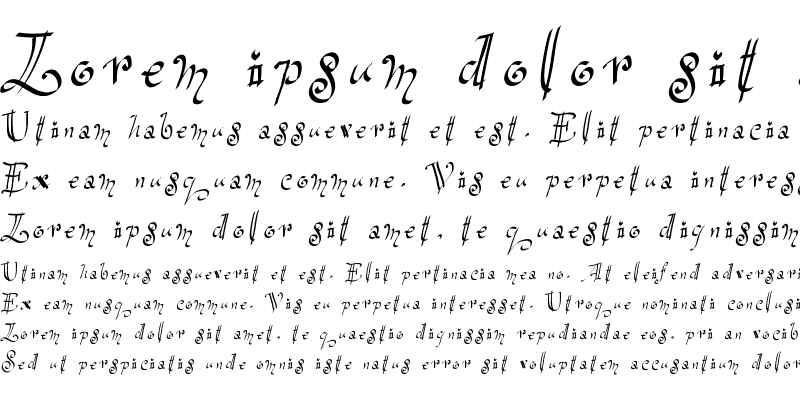 Lorem ipsum dolor sit
Utinam habemus assueverit et est. Elit pertinacia
Ex eam nusquam commune. Vis eu perpetua interess
Lorem ipsum dolor sit amet, te quaestio dignissim
Utinam habemus assueverit et est. Elit pertinacia mea no. At eleifend adversari
Ex eam nusquam commune. Vis eu perpetua interesset. Utroque nominati conclusi
Lorem ipsum dolor sit amet, te quaestio dignissim repudiandae eos, pri an vocib
Sed ut perspiciatis unde omnis iste natus error sit voluptatem accusantium dolor